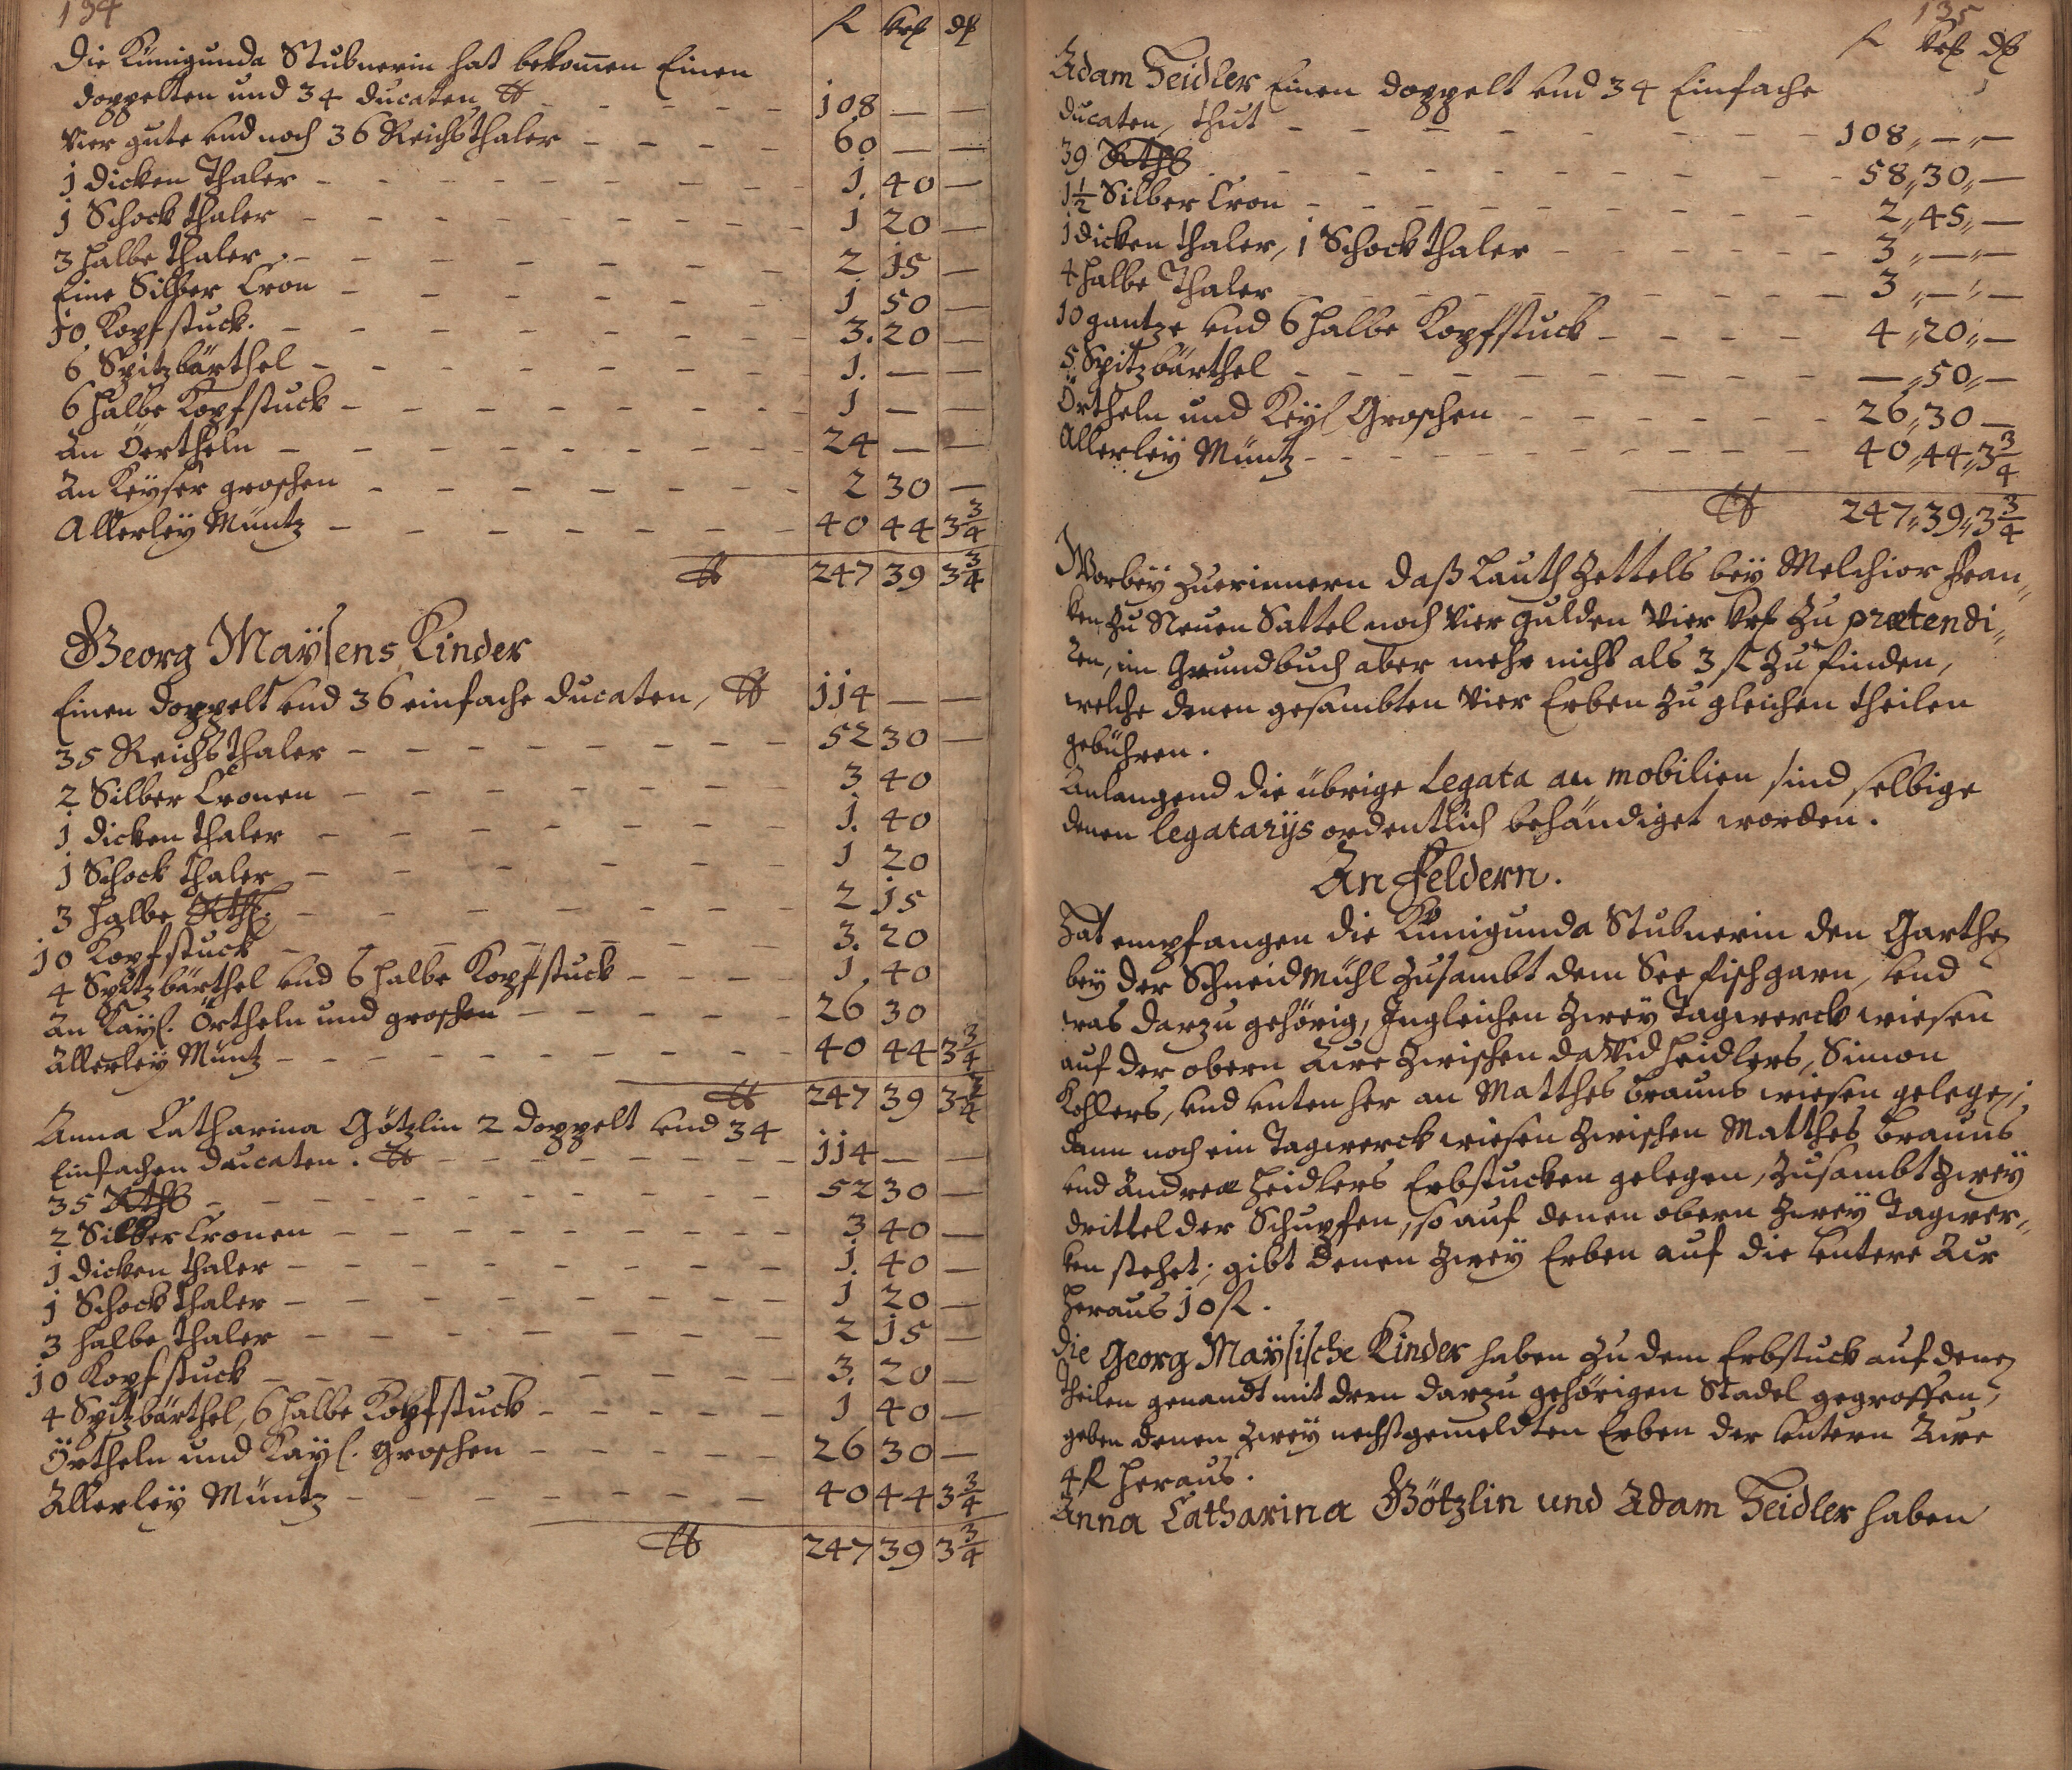 134
fl krl dl
Die Kunigunda Stubnerin hat bekom̄en Einen
doppelten und 34 ducaten
108 — —
vier gute vnd noch 36 Reichsthaler — 60 — —
1 dicken Thaler — 1. 40 —
1 Schock thaler — 1 20 —
3 halbe thaler — 2. 15 —
Eine Silber Cron — 1 50 —
10 Kopfstuck. — 3. 20 —
6 Spitzbärthel — 1. — —
6 halbe Kopfstuck — 1 — —
An Örtheln — 24 — —
An Keyser groschen — 2 30 —
Allerleÿ Müntz — 40 44 3 3/4
247 39 3 3/4
Georg Maÿsens Kinder
Einen doppelt vnd 36 einfache ducaten, 114 — —
35 Reichsthaler — 52 30 —
2 Silber Cronen — 3 40
1 dicken thaler — 1. 40
1 Schock thaler — 1 20
3 halbe Rthl. — 2 15
10 Kopfstuck — 3. 20
4 Spitzbärthel vnd 6 halbe Kopfstuck — 1. 40
An Kaÿs. Örtheln und groschen — 26 30
Allerleÿ Müntz — 40 44 3 3/4
247 39 3 3/4
Anna Catharina Götzlin 2 doppelt vnd 34
Einfachen ducaten. — 114 — —
35 Rthl — 52 30 —
2 Silber Cronen — 3 40 —
1 dicken thaler — 1. 40 —
1 Schock thaler — 1 20 —
3 halbe thaler — 2 15 —
10 Kopfstuck — 3. 20 —
4 Spitzbärthel, 6 halbe Kopfstuck — 1 40 —
Örtheln und Kaÿs. groschen — 26 30 —
Allerleÿ Müntz — 40 44 3 3/4
247 39 3 3/4
135
fl krl dl
Adam Heidler Einen doppelt vnd 34 Einfache
ducaten, thut — 108 „ — „ —
39 Rthl — 58 „ 30 „ —
1 1/2 Silber Cron — 2 „ 45 „ —
1 dicken thaler, 1 Schock thaler — 3 „ — „ —
4 halbe Thaler — 3 „ — „ —
10 gantze vnd 6 halbe Kopfstuck — 4 „ 20 „ —
5 Spitzbärthel — „ 50 „ —
Örtheln und Keÿs Groschen — 26 „ 30 —
Allerleÿ Müntz — 40 „ 44 „ 3 3/4
247 „ 39 „ 3 3/4
Worbeÿ zuerinnern daß Lauth Zettels beÿ Melchior Fran„
ken zu Neuen Sattel noch vier gulden vier krl zu prætendi„
ren, im Grundbuch aber mehr nicht als 3 fl zu finden,
welche denen gesambten vier Erben zu gleichen theilen
gebühren.
Anlangend die übrige Legata an mobilien sind selbige
denen legatarÿs ordentlich behändiget worden.
An Feldern.
Hat empfangen die Kunigunda Stubnerin den Garthen
beÿ der Schneidmühl zusambt dem See fischgarn, vnd
was darzu gehörig, Ingleichen Zweÿ Tagwerck wiesen
auf der obern Aue zwischen david Heidlers, Simon
Kohlers, vnd vnten her an Matthes Brauns wiesen gelegen;
dann noch ein Tagwerck wiesen zwischen Matthes Brauns
vnd Andreæ Heidlers Erbstucken gelegen, zusambt zweÿ
drittel der Schupfen, so auf denen obern zweÿ Tagwer„
ken stehet; gibt denen zweÿ Erben auf die vntere Au
heraus 10 fl.
Die Georg Maÿsische Kinder haben zu dem Erbstuck auf denen
Theilen genandt mit dem darzu gehörigen Stadel gegroffen,
geben denen zweÿ nechstgemeldten Erben der vntern Aue
4 fl heraus.
Anna Catharina Götzlin und Adam Heidler haben